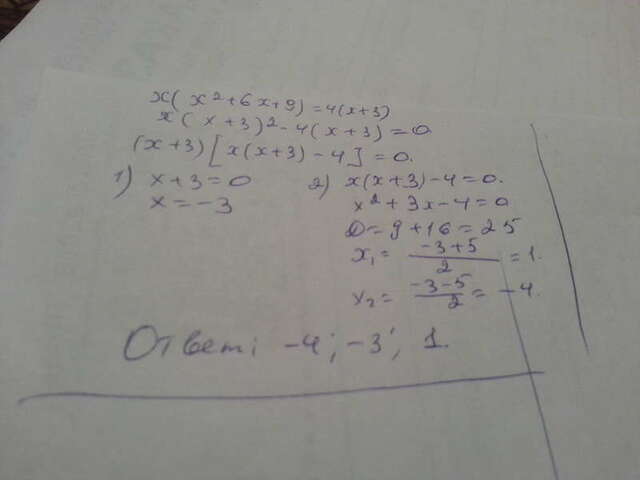 x(x²+6x+9)=4(x+3)
x(x+3)²-4(x+3)=0.
(x+3)[x(x+3)-4]=0.
1) x+3=0
x=-3
2) x(x+3)-4=0.
x²+3x-4=0
D=9+16=25
x₁=(-3+5)/2=1.
x₂=(-3-5)/2=-4.
Ответ: -4; -3; 1.